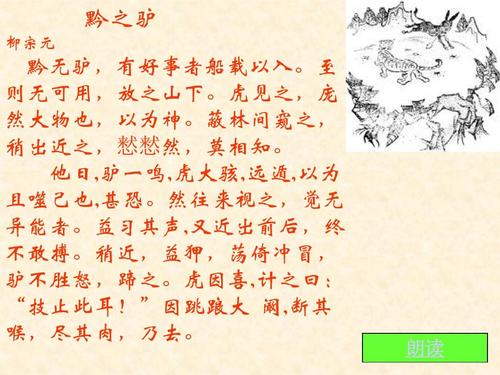 黔之驴
柳宗元
黔无驴，有好事者船载以入。至
则无可用，放之山下。虎见之，庞
然大物也，以为神。蔽林间窥之，
稍出近之，慭慭然，莫相知。
他日,驴一鸣,虎大骇,远遁,以为
且噬己也,甚恐。然往来视之，觉无
异能者。益习其声,又近出前后，终
不敢搏。稍近，益狎，荡倚冲冒，
驴不胜怒，蹄之。虎因喜,计之曰：
“技止此耳！”因跳踉大 阚,断其
喉，尽其肉，乃去。
朗读